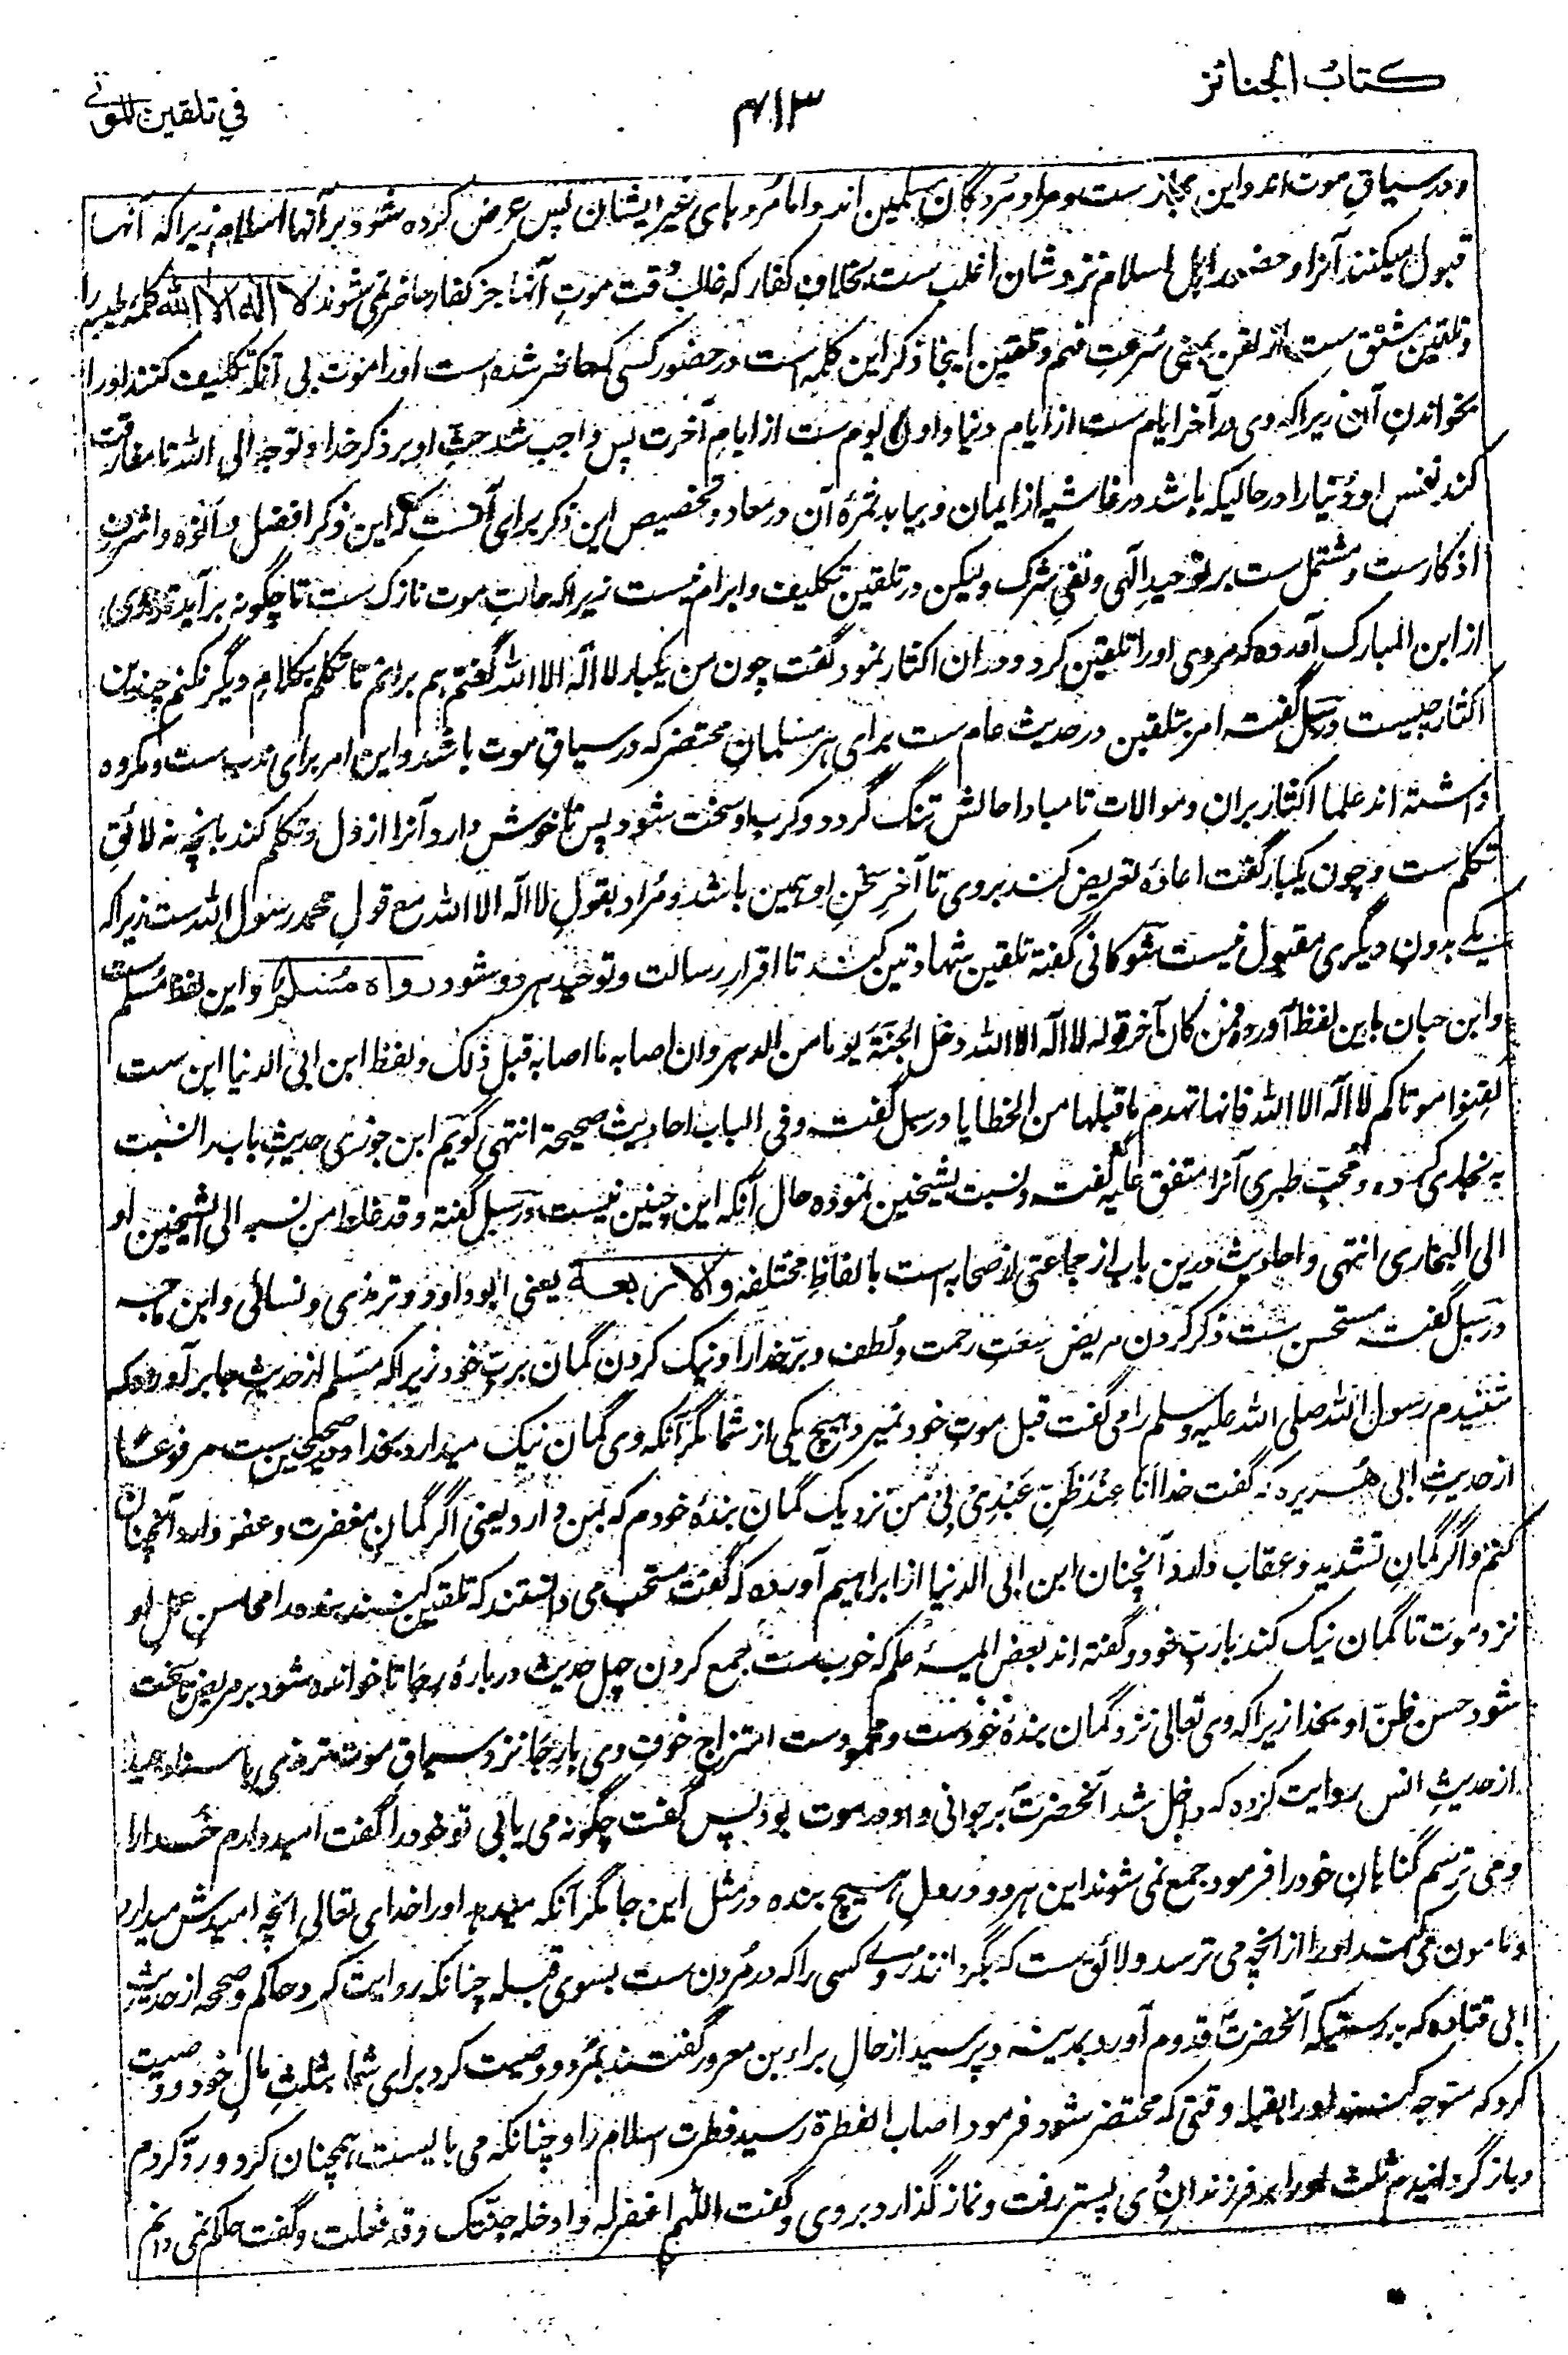 کتاب الجنائز
۶۱۳
في تلقين الموتى
و در سیاق موت اند و این مجاز ست و مراد مردگان مسلمین اند و اما مردهای غیر ایشان پس عرض کرده شود بر آنها اسلام زیرا که آنها
قبول میکنند آنرا و حضور اهل اسلام نزد شان اغلب ست بخلاف کفار که غالب وقت موت آنها جز کفار حاضر نمی شوند لا اله الا الله کلمه طیبه را
و تلقین مشتق ست از لقن بمعنی سرعت فهم و تلقین اینجا ذکر این کلمه است در حضور کسی که حاضر شده است او را موت بی آنکه تکلیف کنند او را
بخواندن آن زیرا که وی در آخر ایام ست از ایام دنیا و اول یوم ست از ایام آخرت پس واجب شد حث او بر ذکر خدا و توجه الی الله تا مفارقت
کند نفس او دنیا را در حالیکه باشد در غاشیه از ایمان و بیابد ثمرهٔ آن در معاد و تخصیص این ذکر برای آنست که این ذکر افضل و اشرف
اذکار ست و مشتمل ست بر توحید الٰهی و نفی شرک و لیکن در تلقین تکلیف و ابرام نیست زیرا که حالت موت نازک ست تا چگونه بر آید ترمذی
از ابن المبارک آورده که مردی او را تلقین کرد و در ان اکثار نمود گفت چون من یکبار لا اله الا الله گفتم هم بر انم تا تکلم بکلام دیگر نکنم چندین
اکثار چیست در سبل گفته امر بتلقین در حدیث عام ست برای هر مسلمان محتضر که در سیاق موت باشد و این امر برای ندب ست و مکروه
داشته اند علما اکثار بران و موالات تا مبادا حالش تنگ گردد و کرب او سخت شود پس ناخوش دارد آنرا از دل و تکلم کند بانچه نه لائق
تکلم ست و چون یکبار گفت اعادهٔ تعریض کند بروی تا آخر سخن او همین باشد و مراد بقول لا اله الا الله مع قول محمد رسول الله ست زیرا که
یکے بدون دیگری مقبول نیست شوکانی گفته تلقین شهادتین کنند تا اقرار رسالت و توحید هر دو شود رواه مسلم و این لفظ مسلم ست
و ابن حبان باین لفظ آورده فمن کان آخر قوله لا اله الا الله دخل الجنة یوما من الدهر وان اصابه ما اصابه قبل ذلک و لفظ ابن ابی الدنیا این ست
لقنوا موتاکم لا اله الا الله فانها تهدم ما قبلها من الخطایا در سبل گفته و فی الباب احادیث صحیحة انتهی گویم ابن جوزی حدیث باب را نسبت
به بخاری کرده و محب طبری آنرا متفق علیه گفته و نسبت بشیخین نموده حال آنکه این چنین نیست در سبل گفته و قد غلط من نسبه الی الشیخین او
الی البخاری انتهی و احادیث درین باب از جماعتی از صحابه است بالفاظ مختلفه والاربعة یعنی ابو داود و ترمذی و نسائی و ابن ماجه
در سبل گفته مستحسن ست ذکر کردن مریض سعت رحمت و لطف و بر خدا را و نیک کردن گمان برب خود زیرا که مسلم از حدیث جابر آورده که
شنیدم رسول الله صلی الله علیه وسلم را می گفت قبل موت خود نمیرد هیچ یکی از شما مگر آنکه وی گمان نیک میدارد بخدا و در صحیحین ست مرفوعا
از حدیث ابی هریره که گفت خدا انا عند ظن عبدی بی من نزدیک گمان بندهٔ خودم که بمن دارد یعنی اگر گمان مغفرت و عفو دارد آنچنان
کنم و اگر گمان تشدید و عقاب دارد آنچنان ابن ابی الدنیا از ابراهیم آورده که گفت مستحب می دانستند که تلقین کنند بنده را محاسن عمل او
نزد موت تا گمان نیک کند بارب خود و گفته اند بعض ائمهٔ علم که خوب ست جمع کردن چهل حدیث در بارهٔ رجا تا خوانده شود بر مریض تا سخت
شود حسن ظن او بخدا زیرا که وی تعالی نزد گمان بندهٔ خود ست و محمود ست امتزاج خوف وی بارجا نزد سیاق موت ترمذی باسناد جید
از حدیث انس روایت کرده که داخل شد آنحضرت بر جوانی و او در موت بود پس گفت چگونه می یابی تو خود را گفت امیدوارم خدا را
و می ترسم گناهان خود را فرمود جمع نمی شوند این هر دو در دل هیچ بنده در مثل این جا مگر آنکه میدهد او را خدای تعالی انچه امیدش میدارد
و مامون می کند او را از انچه می ترسد و لائق ست که بگردانند روے کسی را که در مردن ست بسوی قبله چنانکه روایت کرد حاکم و صححه از حدیث
ابی قتاده که بدرستیکه آنحضرت قدوم آورد بمدینه و پرسید از حال براء بن معرور گفتند بمرد و وصیت کرد برای شما بثلث مال خود و وصیت
کرد که متوجه کنند او را بقبله وقتی که محتضر شود فرمود اصاب الفطرة رسید فطرت اسلام را و چنانکه می بایست همچنان کرد و رد کردم
و باز گردانیدم ثلث او را بر فرزندان وی پستر رفت و نماز گذارد بروی و گفت اللهم اغفر له وادخله جنتک وقد فعلت و گفت حاکم نمی دانم